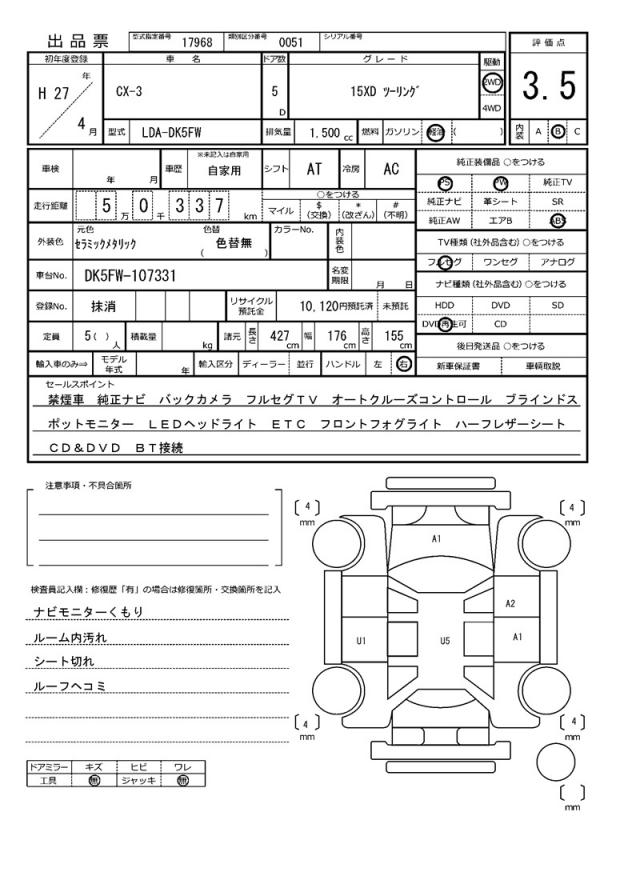 出品票 型式指定番号 17968 類別区分番号 0051 シリアル番号
評価点
3.5
初年度登録 車名 ドア数 グレード 駆動
H 27 年 4 月 CX-3 5 D 15XD ツーリング 2WD 4WD
型式 LDA-DK5FW 排気量 1,500 cc 燃料 ガソリン 軽油 ( ) 内装 A B C
車検 年 月 車歴 ※未記入は自家用 自家用 シフト AT 冷房 AC
走行距離 5 万 0 千 3 3 7 km ○をつける マイル $(交換) *(改ざん) #(不明)
外装色 元色 セラミックメタリック 色替 ( 色替無 ) カラーNo. 内装色
車台No. DK5FW-107331 名変期限 月 日
登録No. 抹消 リサイクル預託金 10,120円預託済 未預託
定員 5( ) 人 積載量 kg 諸元 長さ 427 cm 幅 176 cm 高さ 155 cm
輸入車のみ⇒ モデル年式 年 輸入区分 ディーラー 並行 ハンドル 左 右
純正装備品 ○をつける
PS PW 純正TV
純正ナビ 革シート SR
純正AW エアB ABS
TV種類 (社外品含む) ○をつける
フルセグ ワンセグ アナログ
ナビ種類 (社外品含む) ○をつける
HDD DVD SD
DVD再生可 CD
後日発送品 ○をつける
新車保証書 車輌取説
セールスポイント
禁煙車 純正ナビ バックカメラ フルセグTV オートクルーズコントロール ブラインドス
ポットモニター LEDヘッドライト ETC フロントフォグライト ハーフレザーシート
CD&DVD BT接続
注意事項・不具合箇所
検査員記入欄:修復歴「有」の場合は修復箇所・交換箇所を記入
ナビモニターくもり
ルーム内汚れ
シート切れ
ルーフヘコミ
ドアミラー キズ ヒビ ワレ
工具 無 ジャッキ 無
4 mm
4 mm
A1
A2
U1 U5 A1
4 mm
4 mm
mm